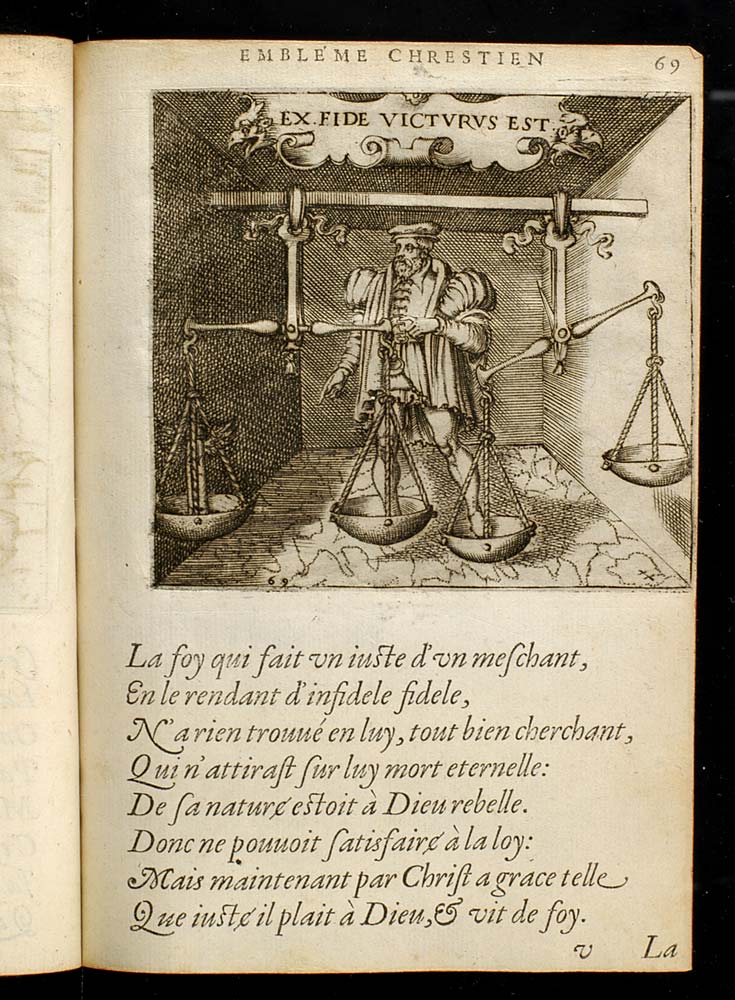 EMBLÉME CHRESTIEN 69
EX.FIDE VICTVRVS EST.
69
La foy qui fait vn iuste d'vn meſchant,
En le rendant d'infidele fidele,
N'a rien trouué en luy, tout bien cherchant,
Qui n'attiraſt ſur luy mort eternelle:
De ſa nature̸ estoit à Dieu rebelle.
Donc ne pouuoit ſatisfaire̸ à la loy:
Mais maintenant par Chriſt a grace telle
Que iuste̸ il plait à Dieu, & vit de foy.
v La